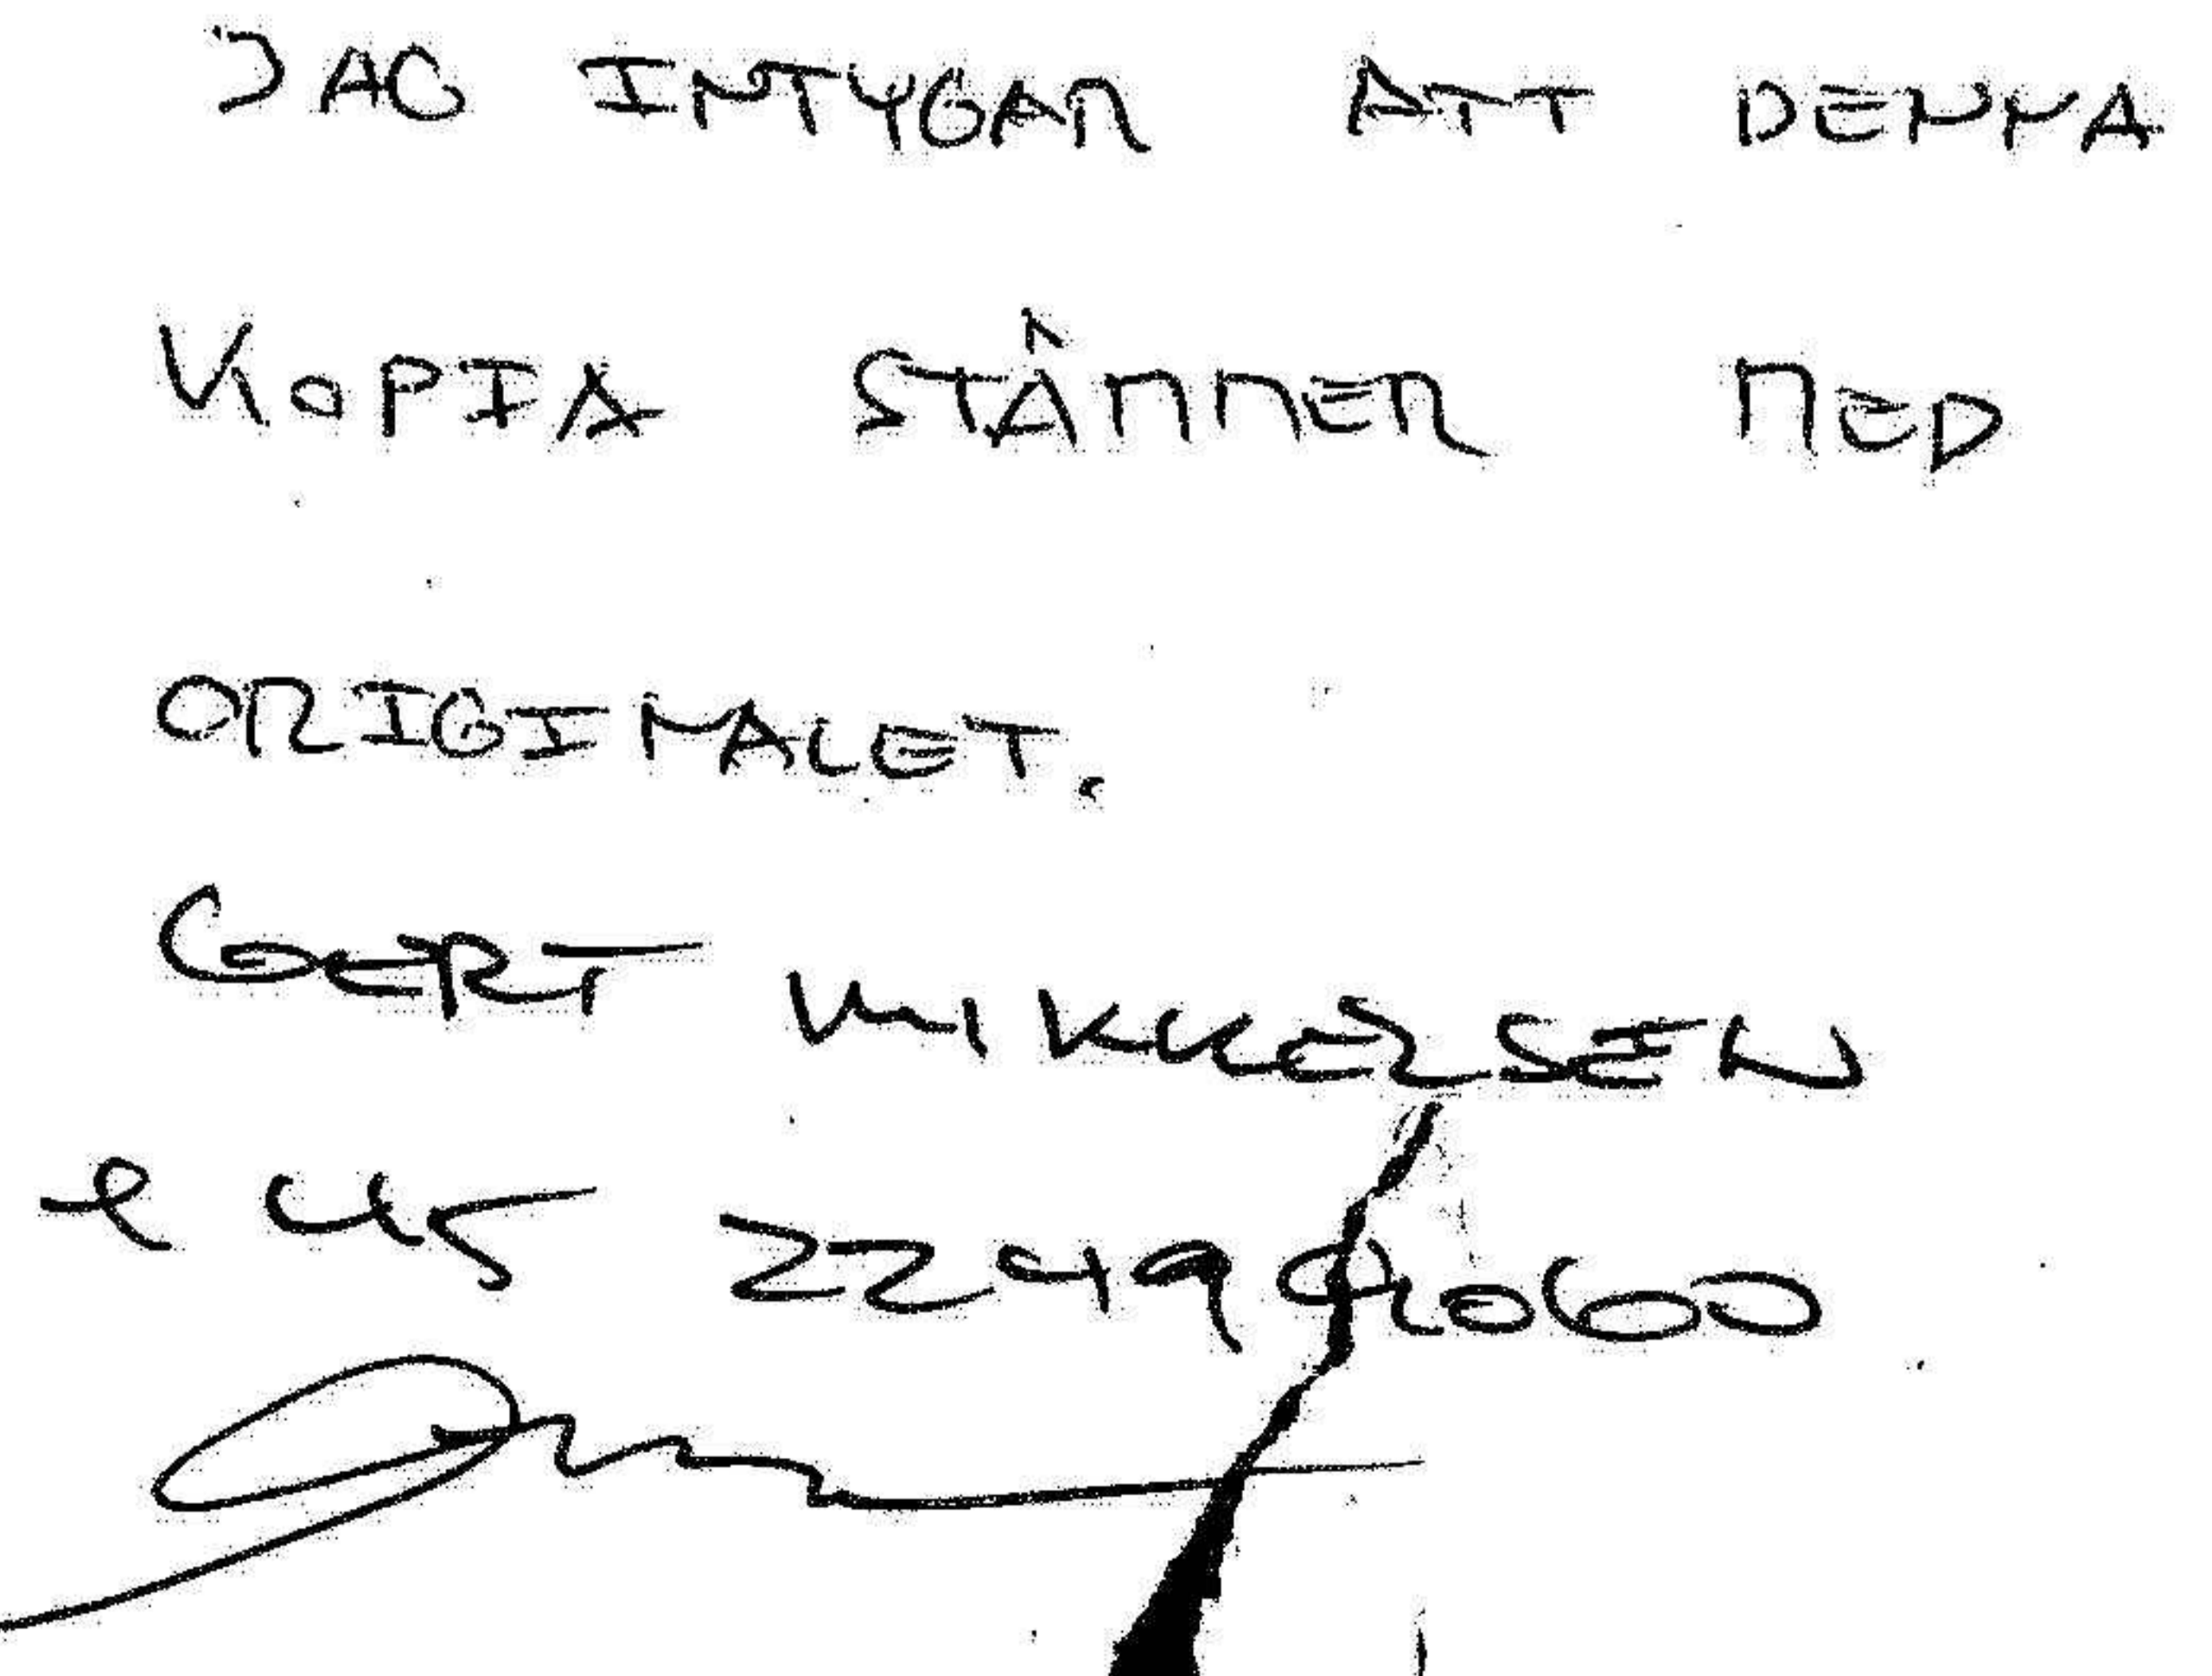 JAG INTYGAR ATT DENNA
KOPIA STÄMMER MED
ORIGINALET.
GERT MIKKELSEN